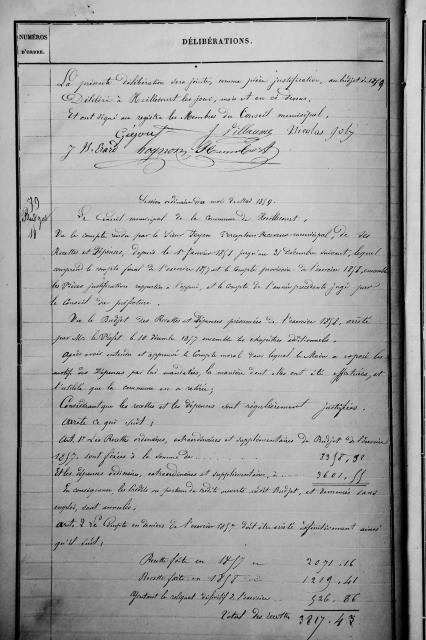 NUMÉROS
D'ORDRE.
DÉLIBÉRATIONS.
La présente délibération sera jointe, comme pièce justificative, au budget de 1859
Délibéré à Heillecourt les jour, mois et an ci dessus.
Et ont signé au registre les Membres du Conseil municipal.
J. Villaume Nicolas Joly
79
Session ordinaire du mois de Mai 1859.
Le Conseil municipal de la Commune de Heillecourt,
Vu le compte rendu par le Sieur receveur municipal, de ses
Recettes et Dépenses, depuis le 1er janvier 1858 jusqu'au 31 décembre suivant, lequel
comprend le compte final de l'exercice 1857 et le Compte provisoire de l'exercice 1858, ensemble
les Pièces justificatives rapportées à l'appui, et le Compte de l'année précédente jugé par
le Conseil de préfecture.
Vu le Budget des Recettes et Dépenses présumées de l'exercice 1858, arrêté
par Mr. le Préfet le 10 Décembre 1857 ensemble les chapitres additionnels.
Après avoir entendu et approuvé le Compte moral dans lequel le Maire a exposé les
motifs des Dépenses par lui mandatées, la manière dont elles ont été effectuées, et
l'utilité que la commune en a retirée;
Considérant que les recettes et les dépenses sont régulièrement justifiées.
Arrête ce qui suit;
Art. 1er Les Recettes ordinaires, extraordinaires et supplémentaires du Budget de l'exercice
1857. sont fixées à la somme de
Et les dépenses ordinaires, extraordinaires et supplémentaires, à 3601.55
En conséquence les crédits ou portions de crédits ouverts au dit Budget, et demeurés sans
emploi, sont annulés.
Art. 2 Le Compte en deniers de l'exercice 1857 doit être arrêté définitivement ainsi
qu'il suit;
Recette faite en 1857 2071.16
Recette faite en 1858 1219.41
Ajoutant le reliquat définitif de l'exercice 526.86
Total des recettes 3817.43